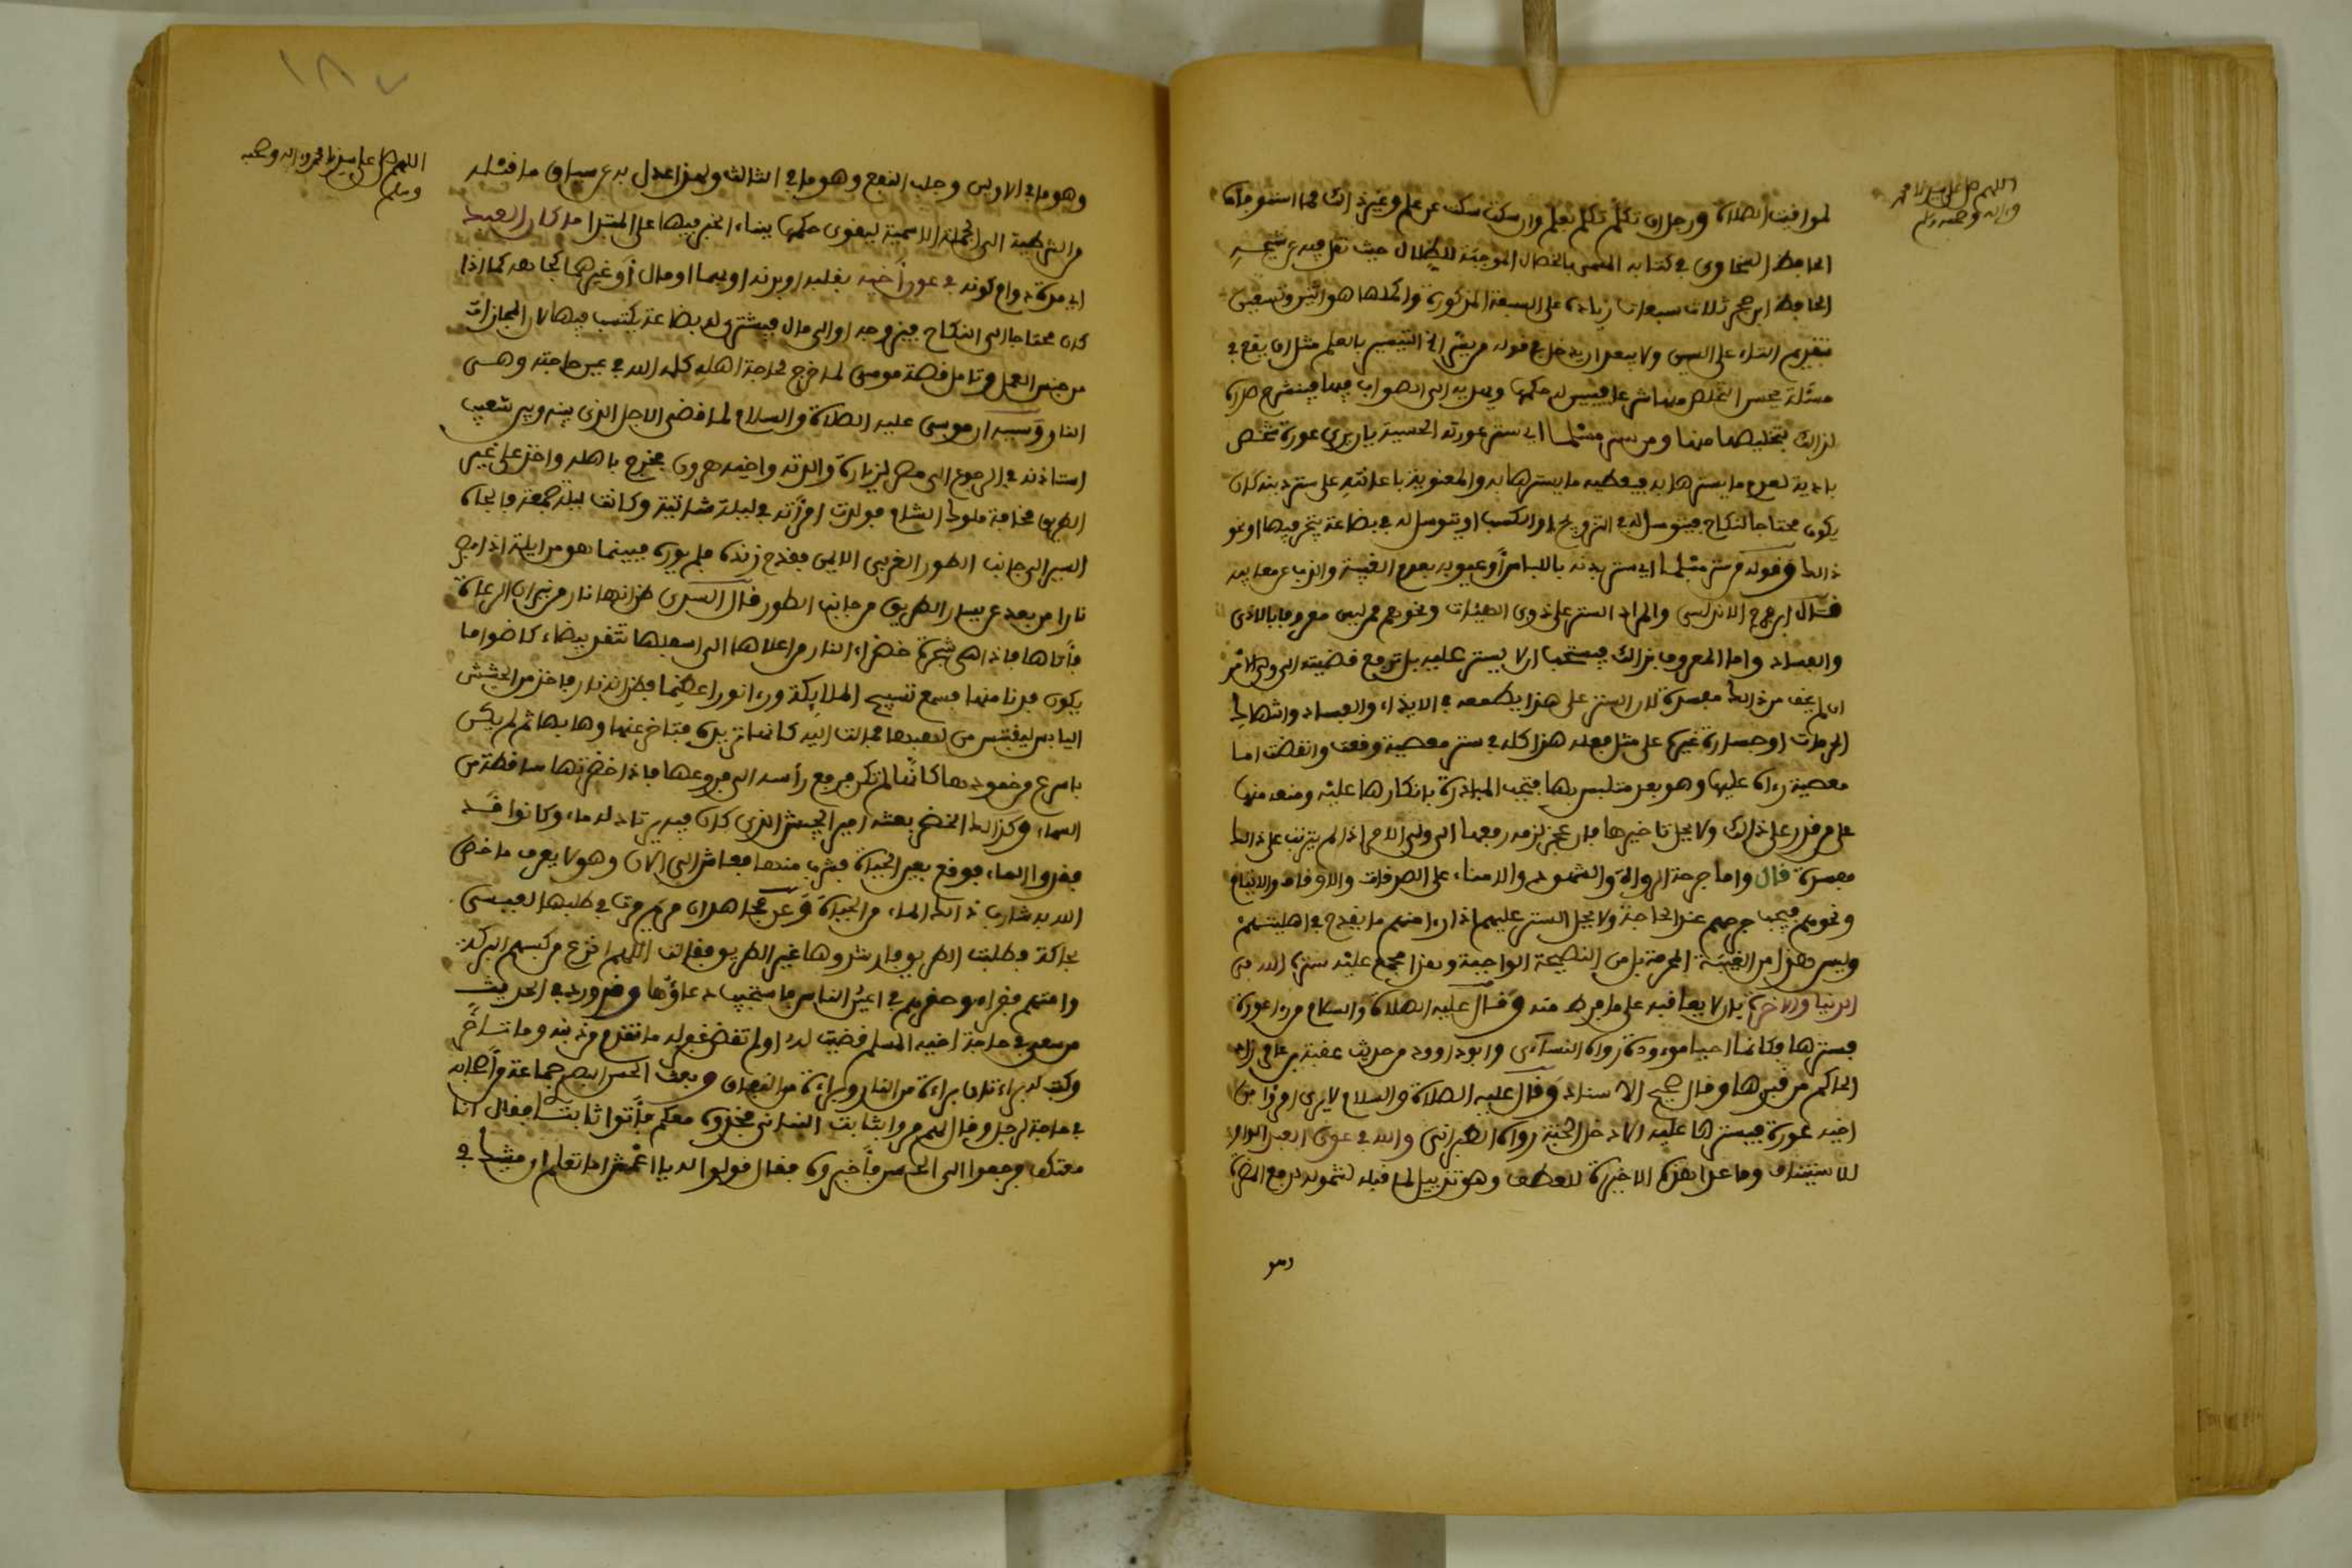 اللهم صل على سيدنا محمد
وءاله وصحبه وسلم
لمواقيت الصلاة ورجل ان تكلم تكلم بعلم وان سكت سكت عن علم وغير ذلك مما استوفاه
الحافظ السخاوي في كتابه المسمى بالخصال الموجبة للظلال حيث نقل فيه عن شيخه
الحافظ ابن حجر ثلاث سبعات زيادة على السبعة المذكورة واكملها هو اثنين وتسعين
بتقديم التاء على السين ولا يبعد ان يدخل في قوله من يسر الخ التيسير بالعلم مثل ان يقع في
مسئلة يحسر التخلص منها شرعا فييسر له حكمها ويهديه الى الصواب فيها فينشرح صدره
لذلك بتخليصه منها ومن ستر مسلما اي ستر عورته الحسية بان يرى عورة شخص
بادية لعدم ما يسترها به فيعطيه ما يسترها به والمعنوية باعانته على ستر دينه كان
يكون محتاجا لنكاح فيتوسل له في التزويج او الكسب او يتوسل له في بضاعة يتجر فيها او نحو
ذلك وقوله من ستر مسلما اي ستر بدنه باللباس او عيوبه بعدم الغيبة والذب عن معايبه
قال ابن فرح الاندلسي والمراد الستر على ذوي الهيئات ونحوهم ممن ليس معروفا بالاذى
والفساد واما المعروف بذلك فيستحب ان لا يستر عليه بل ترفع قضيته الى ولي الامر
ان لم يخف من ذلك مفسدة لان الستر على هذا يطمعه في الايذاء والفساد وانتهاك
الحرمات او جسارة غيره على مثل فعله هذا كله في ستر معصية وقعت وانقضت اما
معصية رءاه عليها وهو بعد متلبس بها فتجب المبادرة بانكارها عليه ومنعه منها
على من قدر على ذلك ولا يحل تاخيرها فان عجز لزمه رفعها الى ولي الامر اذا لم يترتب على ذلك
مفسدة قال واما جرحة الرواة والشهود والامناء على الصدقات والاوقاف والايتام
ونحوهم فيجب جرحهم عند الحاجة ولا يحل الستر عليهم اذا رءا منهم ما يقدح في اهليتهم
وليس هذا من الغيبة المحرمة بل من النصيحة الواجبة وهذا مجمع عليه ستره الله في
الدنيا والاخرة بان لا يعاقبه على ما فرط منه وقال عليه الصلاة والسلام من رءا عورة
فسترها فكانما احيا موءودة رواه النسائي وابو داوود من حديث عقبة بن عامر زاد
الحاكم من قبرها وقال صحيح الاسناد وقال عليه الصلاة والسلام لا يرى امرؤ من
اخيه عورة فيسترها عليه الا دخل الجنة رواه الطبراني والله في عون العبد الواو
للاستيناف وما عدا هذه الاخيرة للعطف وهو تذييل لما قبله لشموله دفع المضرة
وهو
١٨٧
اللهم صل على سيدنا محمد وءاله وصحبه
وسلم
وهو ما في الاولين وجلب النفع وهو ما في الثالث ولهذا عدل به عن سياق ما قبله
من الشرطية الى الجملة الاسمية ليقوى حكمها ببناء الخبر فيها على المبتدا ما كان العبد
اي مدة دوام كونه في عون أخيه بقلبه او بدنه او بهما او مال أو غيرهما كجاهه كما اذا
كان محتاجا الى النكاح فيزوجه او الى مال فيشتري له بضاعة يكتسب فيها لان المجازات
من جنس العمل وتامل قصة موسى لما خرج لحاجة اهله كلمه الله في عين حاجته وهي
النار وسببه ان موسى عليه الصلاة والسلام لما قضى الاجل الذي بينه وبين شعيب
استاذنه في الرجوع الى مصر لزيارة والدته واخيه هرون فخرج باهله واخذ على غير
الطريق مخافة ملوك الشام فولدت امرأته في ليلة شاتية وكانت ليلة جمعة فالجاه
السير الى جانب الطور الغربي الايمن فقدح زنده فلم يوره فبينما هو مزايلة اذ ابصر
نارا من بعد عن يسار الطريق من جانب الطور قال السدي ظن انها نار من نيران الرعاة
فأتاها فاذا هي شجرة خضراء النار من اعلاها الى اسفلها تتقد بيضاء كاضوا ما
يكون فدنا منها فسمع تسبيح الملايكة ورءا نورا عظيما فظن انه نار فاخذ من الحشيش
اليابس ليقتبس من لهبها فمالت اليه كانها تريده فتاخر عنها وهابها ثم لم يكن
باسرع من خمودها كأنها لم تكن فرفع رأسه الى فروعها فاذا خضرتها ساطعة في
السماء وكذلك الخضر بعثه امير الجيش الذي كان فيه يرتاد له ماء وكانوا قد
فقدوا الماء فوقع بعين الحياة فشرب منها فعاش الى الان وهو لا يعرف ما خص
الله به شارب ذلك الماء من الحياة وعن مجاهد ان مريم مرت في طلبها لعيسى
بحاكة فطلبت الطريق فارشدوها غير الطريق فقالت اللهم انزع من كسبهم البركة
وامتهم فقراء وحقرهم في اعين الناس فاستجيب دعاؤها وقد ورد في الحديث
من سعى في حاجة اخيه المسلم قضيت له او لم تقض غفر له ما تقدم من ذنبه وما تاخر
وكتب له براءتان براءة من النار وبراءة من النفاق وبعث الحسن البصري جماعة من أصحابه
في حاجة لرجل وقال لهم مروا بثابت البناني فخذوه معكم فأتوا ثابتا فقال انا
معتكف فرجعوا الى الحسن فأخبروه فقال قولوا له يا اعمش اما تعلم ان مشيك في